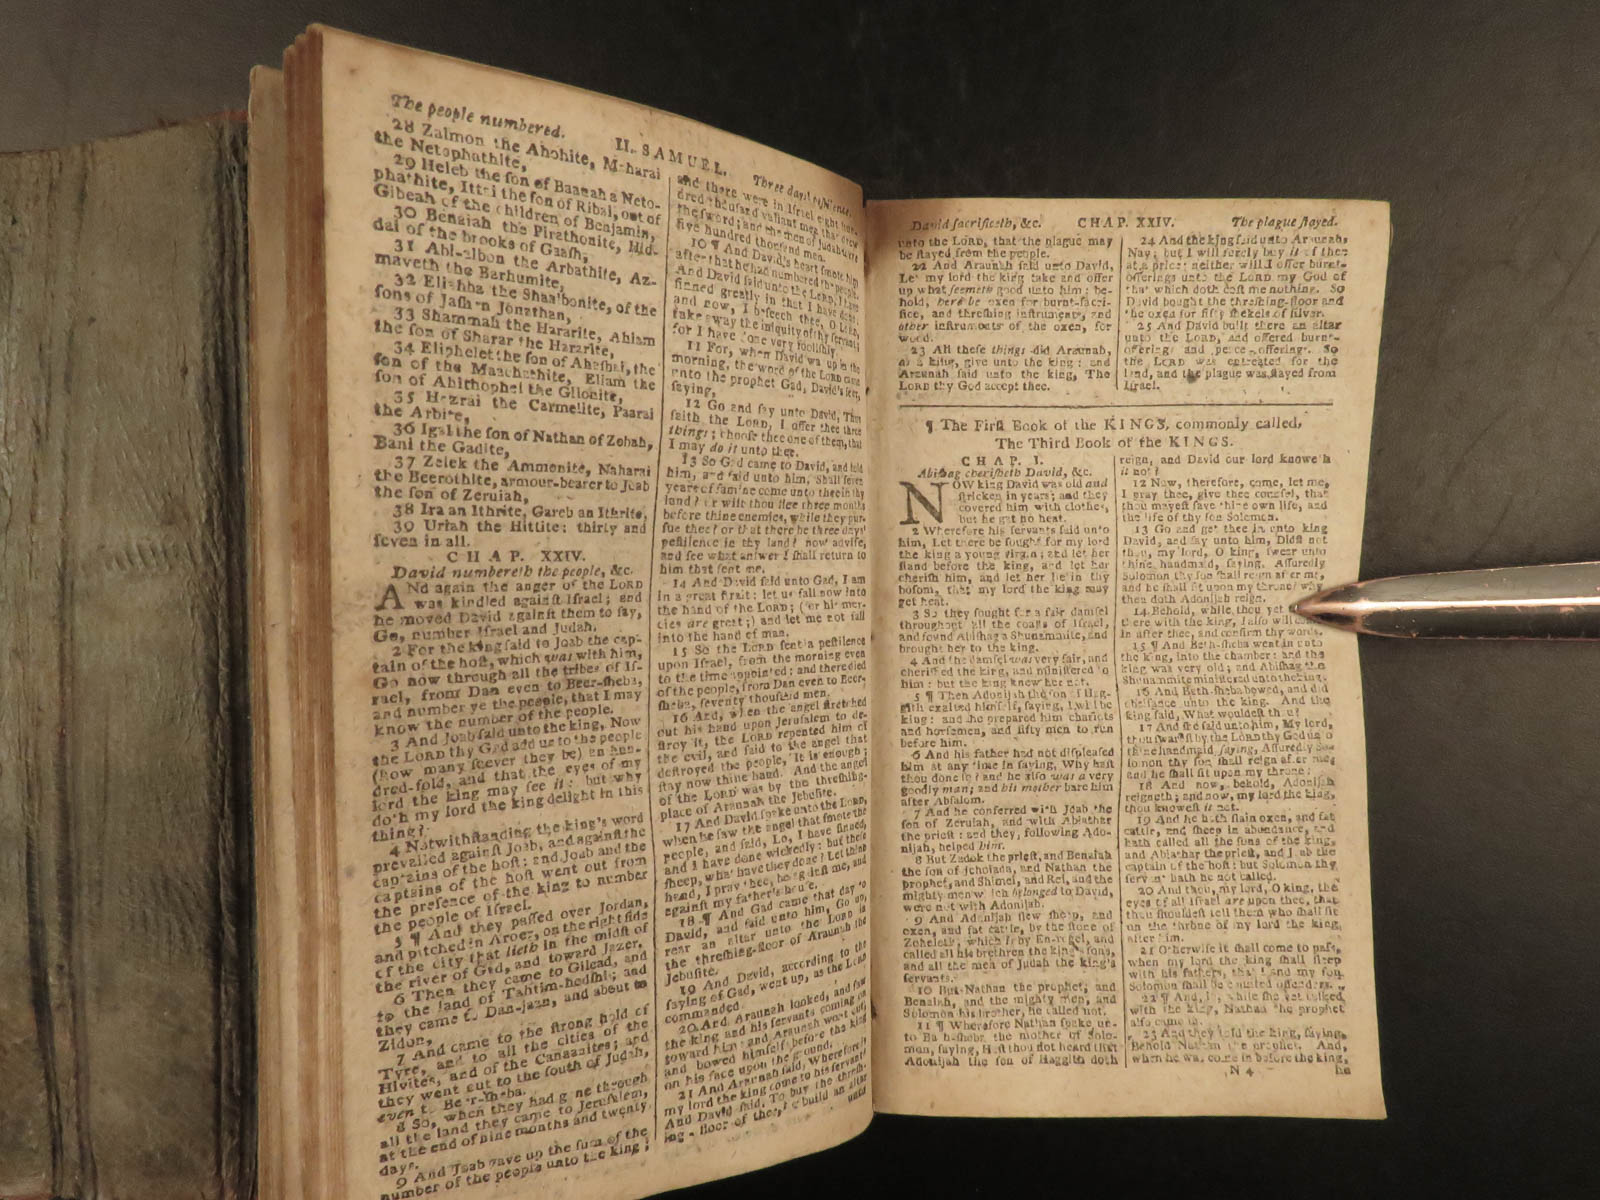 The people numbered.
II. SAMUEL.
Three days pestilence.
28 Zalmon the Ahohite, Maharai
the Netophathite,
29 Heleb the son of Baanah a Neto-
phathite, Ittai the son of Ribai, out of
Gibeah of the children of Benjamin,
30 Benaiah the Pirathonite, Hid-
dai of the brooks of Gaash,
31 Abi-albon the Arbathite, Az-
maveth the Barhumite,
32 Eliahba the Shaalbonite, of the
sons of Jashen Jonathan,
33 Shammah the Hararite, Ahiam
the son of Sharar the Hararite,
34 Eliphelet the son of Ahasbai, the
son of the Maachathite, Eliam the
son of Ahithophel the Gilonite,
35 Hezrai the Carmelite, Paarai
the Arbite,
36 Igal the son of Nathan of Zobah,
Bani the Gadite,
37 Zelek the Ammonite, Naharai
the Beerothite, armour-bearer to Joab
the son of Zeruiah,
38 Ira an Ithrite, Gareb an Ithrite,
39 Uriah the Hittite: thirty and
seven in all.
CHAP. XXIV.
David numbereth the people, &c.
ANd again the anger of the LORD
was kindled against Israel; and
he moved David against them to say,
Go, number Israel and Judah.
2 For the king said to Joab the cap-
tain of the host, which was with him,
Go now through all the tribes of Is-
rael, from Dan even to Beer-sheba,
and number ye the people, that I may
know the number of the people.
3 And Joab said unto the king, Now
the LORD thy God add unto the people
(how many soever they be) an hun-
dred-fold, and that the eyes of my
lord the king may see it: but why
doth my lord the king delight in this
thing?
4 Notwithstanding the king's word
prevailed against Joab, and against the
captains of the host: and Joab and the
captains of the host went out from
the presence of the king to number
the people of Israel.
5 ¶ And they passed over Jordan,
and pitched in Aroer, on the right side
of the city that lieth in the midst of
the river of Gad, and toward Jazer.
6 Then they came to Gilead, and
to the land of Tahtim-hodshi; and
they came to Dan-jaan, and about to
Zidon,
7 And came to the strong hold of
Tyre, and to all the cities of the
Hivites, and of the Canaanites; and
they went out to the south of Judah,
even to Beer-sheba.
8 So, when they had gone through
all the land they came to Jerusalem,
at the end of nine months and twenty
days.
9 And Joab gave up the sum of the
number of the people unto the king;
and there were in Israel eight hun-
dred thousand valiant men that drew
the sword; and the men of Judah were
five hundred thousand men.
10 ¶ And David's heart smote him
after that he had numbered the people.
And David said unto the LORD, I have
sinned greatly in that I have done:
and now, I beseech thee, O LORD,
take away the iniquity of thy servant;
for I have done very foolishly.
11 For, when David was up in the
morning, the word of the LORD came
unto the prophet Gad, David's seer,
saying,
12 Go and say unto David, Thus
saith the LORD, I offer thee three
things; choose thee one of them, that
I may do it unto thee.
13 So Gad came to David, and told
him, and said unto him, Shall seven
years of famine come unto thee in thy
land? or wilt thou flee three months
before thine enemies, while they pur-
sue thee? or that there be three days'
pestilence in thy land? now advise,
and see what answer I shall return to
him that sent me.
14 And David said unto Gad, I am
in a great strait: let us fall now into
the hand of the LORD; (for his mer-
cies are great;) and let me not fall
into the hand of man.
15 So the LORD sent a pestilence
upon Israel, from the morning even
to the time appointed: and there died
of the people, from Dan even to Beer-
sheba, seventy thousand men.
16 And, when the angel stretched
out his hand upon Jerusalem to de-
stroy it, the LORD repented him of
the evil, and said to the angel that
destroyed the people, It is enough;
stay now thine hand. And the angel
of the LORD was by the threshing-
place of Araunah the Jebusite.
17 And David spake unto the LORD,
when he saw the angel that smote the
people, and said, Lo, I have sinned,
and I have done wickedly: but these
sheep, what have they done? Let thine
hand, I pray thee, be against me, and
against my father's house.
18 ¶ And Gad came that day to
David, and said unto him, Go up,
rear an altar unto the LORD in
the threshing-floor of Araunah the
Jebusite.
19 And David, according to the
saying of Gad, went up, as the LORD
commanded.
20 And Araunah looked, and saw
the king and his servants coming on
toward him: and Araunah went out,
and bowed himself before the king
on his face upon the ground.
21 And Araunah said, Wherefore is
my lord the king come to his servant?
And David said, To buy the thresh-
ing-floor of thee, to build an altar
unto
David sacrificeth, &c.
CHAP. XXIV.
The plague stayed.
unto the LORD, that the plague may
be stayed from the people.
22 And Araunah said unto David,
Let my lord the king take and offer
up what seemeth good unto him: be-
hold, here be oxen for burnt-sacri-
fice, and threshing instruments, and
other instruments of the oxen, for
wood.
23 All these things did Araunah,
as a king, give unto the king: and
Araunah said unto the king, The
LORD thy God accept thee.
24 And the king said unto Araunah,
Nay; but I will surely buy it of thee
at a price: neither will I offer burnt-
offerings unto the LORD my God of
that which doth cost me nothing. So
David bought the threshing-floor and
the oxen for fifty shekels of silver.
25 And David built there an altar
unto the LORD, and offered burnt-
offerings and peace-offerings. So
the LORD was entreated for the
land, and the plague was stayed from
Israel.
¶ The First Book of the KINGS, commonly called,
The Third Book of the KINGS.
CHAP. I.
Abishag cherisheth David, &c.
NOW king David was old and
stricken in years; and they
covered him with clothes,
but he gat no heat.
2 Wherefore his servants said unto
him, Let there be sought for my lord
the king a young virgin; and let her
stand before the king, and let her
cherish him, and let her lie in thy
bosom, that my lord the king may
get heat.
3 So they sought for a fair damsel
throughout all the coasts of Israel,
and found Abishag a Shunammite, and
brought her to the king.
4 And the damsel was very fair, and
cherished the king, and ministered to
him: but the king knew her not.
5 ¶ Then Adonijah the son of Hag-
gith exalted himself, saying, I will be
king: and he prepared him chariots
and horsemen, and fifty men to run
before him.
6 And his father had not displeased
him at any time in saying, Why hast
thou done so? and he also was a very
goodly man; and his mother bare him
after Absalom.
7 And he conferred with Joab the
son of Zeruiah, and with Abiathar
the priest: and they, following Ado-
nijah, helped him.
8 But Zadok the priest, and Benaiah
the son of Jehoiada, and Nathan the
prophet, and Shimei, and Rei, and the
mighty men which belonged to David,
were not with Adonijah.
9 And Adonijah slew sheep, and
oxen, and fat cattle, by the stone of
Zoheleth, which is by En-rogel, and
called all his brethren the king's sons,
and all the men of Judah the king's
servants.
10 But Nathan the prophet, and
Benaiah, and the mighty men, and
Solomon his brother, he called not.
11 ¶ Wherefore Nathan spake un-
to Bath-sheba the mother of Solo-
mon, saying, Hast thou not heard that
Adonijah the son of Haggith doth
reign, and David our lord knoweth
it not?
12 Now, therefore, come, let me,
I pray thee, give thee counsel, that
thou mayest save thine own life, and
the life of thy son Solomon.
13 Go and get thee in unto king
David, and say unto him, Didst not
thou, my lord, O king, swear unto
thine handmaid, saying, Assuredly
Solomon thy son shall reign after me,
and he shall sit upon my throne? why
then doth Adonijah reign.
14 Behold, while thou yet
there with the king, I also will come
in after thee, and confirm thy words.
15 ¶ And Beth-sheba went in unto
the king, into the chamber: and the
king was very old; and Abishag the
Shunammite ministered unto the king.
16 And Beth-sheba bowed, and did
obeisance unto the king. And the
king said, What wouldest thou?
17 And she said unto him, My lord,
thou swarest by the LORD thy God unto
thine handmaid, saying, Assuredly So-
lomon thy son shall reign after me,
and he shall sit upon my throne:
18 And now, behold, Adonijah
reigneth; and now, my lord the king,
thou knowest it not.
19 And he hath slain oxen, and fat
cattle, and sheep in abundance, and
hath called all the sons of the king,
and Abiathar the priest, and Joab the
captain of the host: but Solomon thy
servant hath he not called.
20 And thou, my lord, O king, the
eyes of all Israel are upon thee, that
thou shouldest tell them who shall sit
on the throne of my lord the king
after him.
21 Otherwise it shall come to pass,
when my lord the king shall sleep
with his fathers, that I and my son
Solomon shall be counted offenders.
22 ¶ And, lo, while she yet talked
with the king, Nathan the prophet
also came in.
23 And they told the king, saying,
Behold Nathan the prophet. And,
when he was come in before the king,
N 4
he